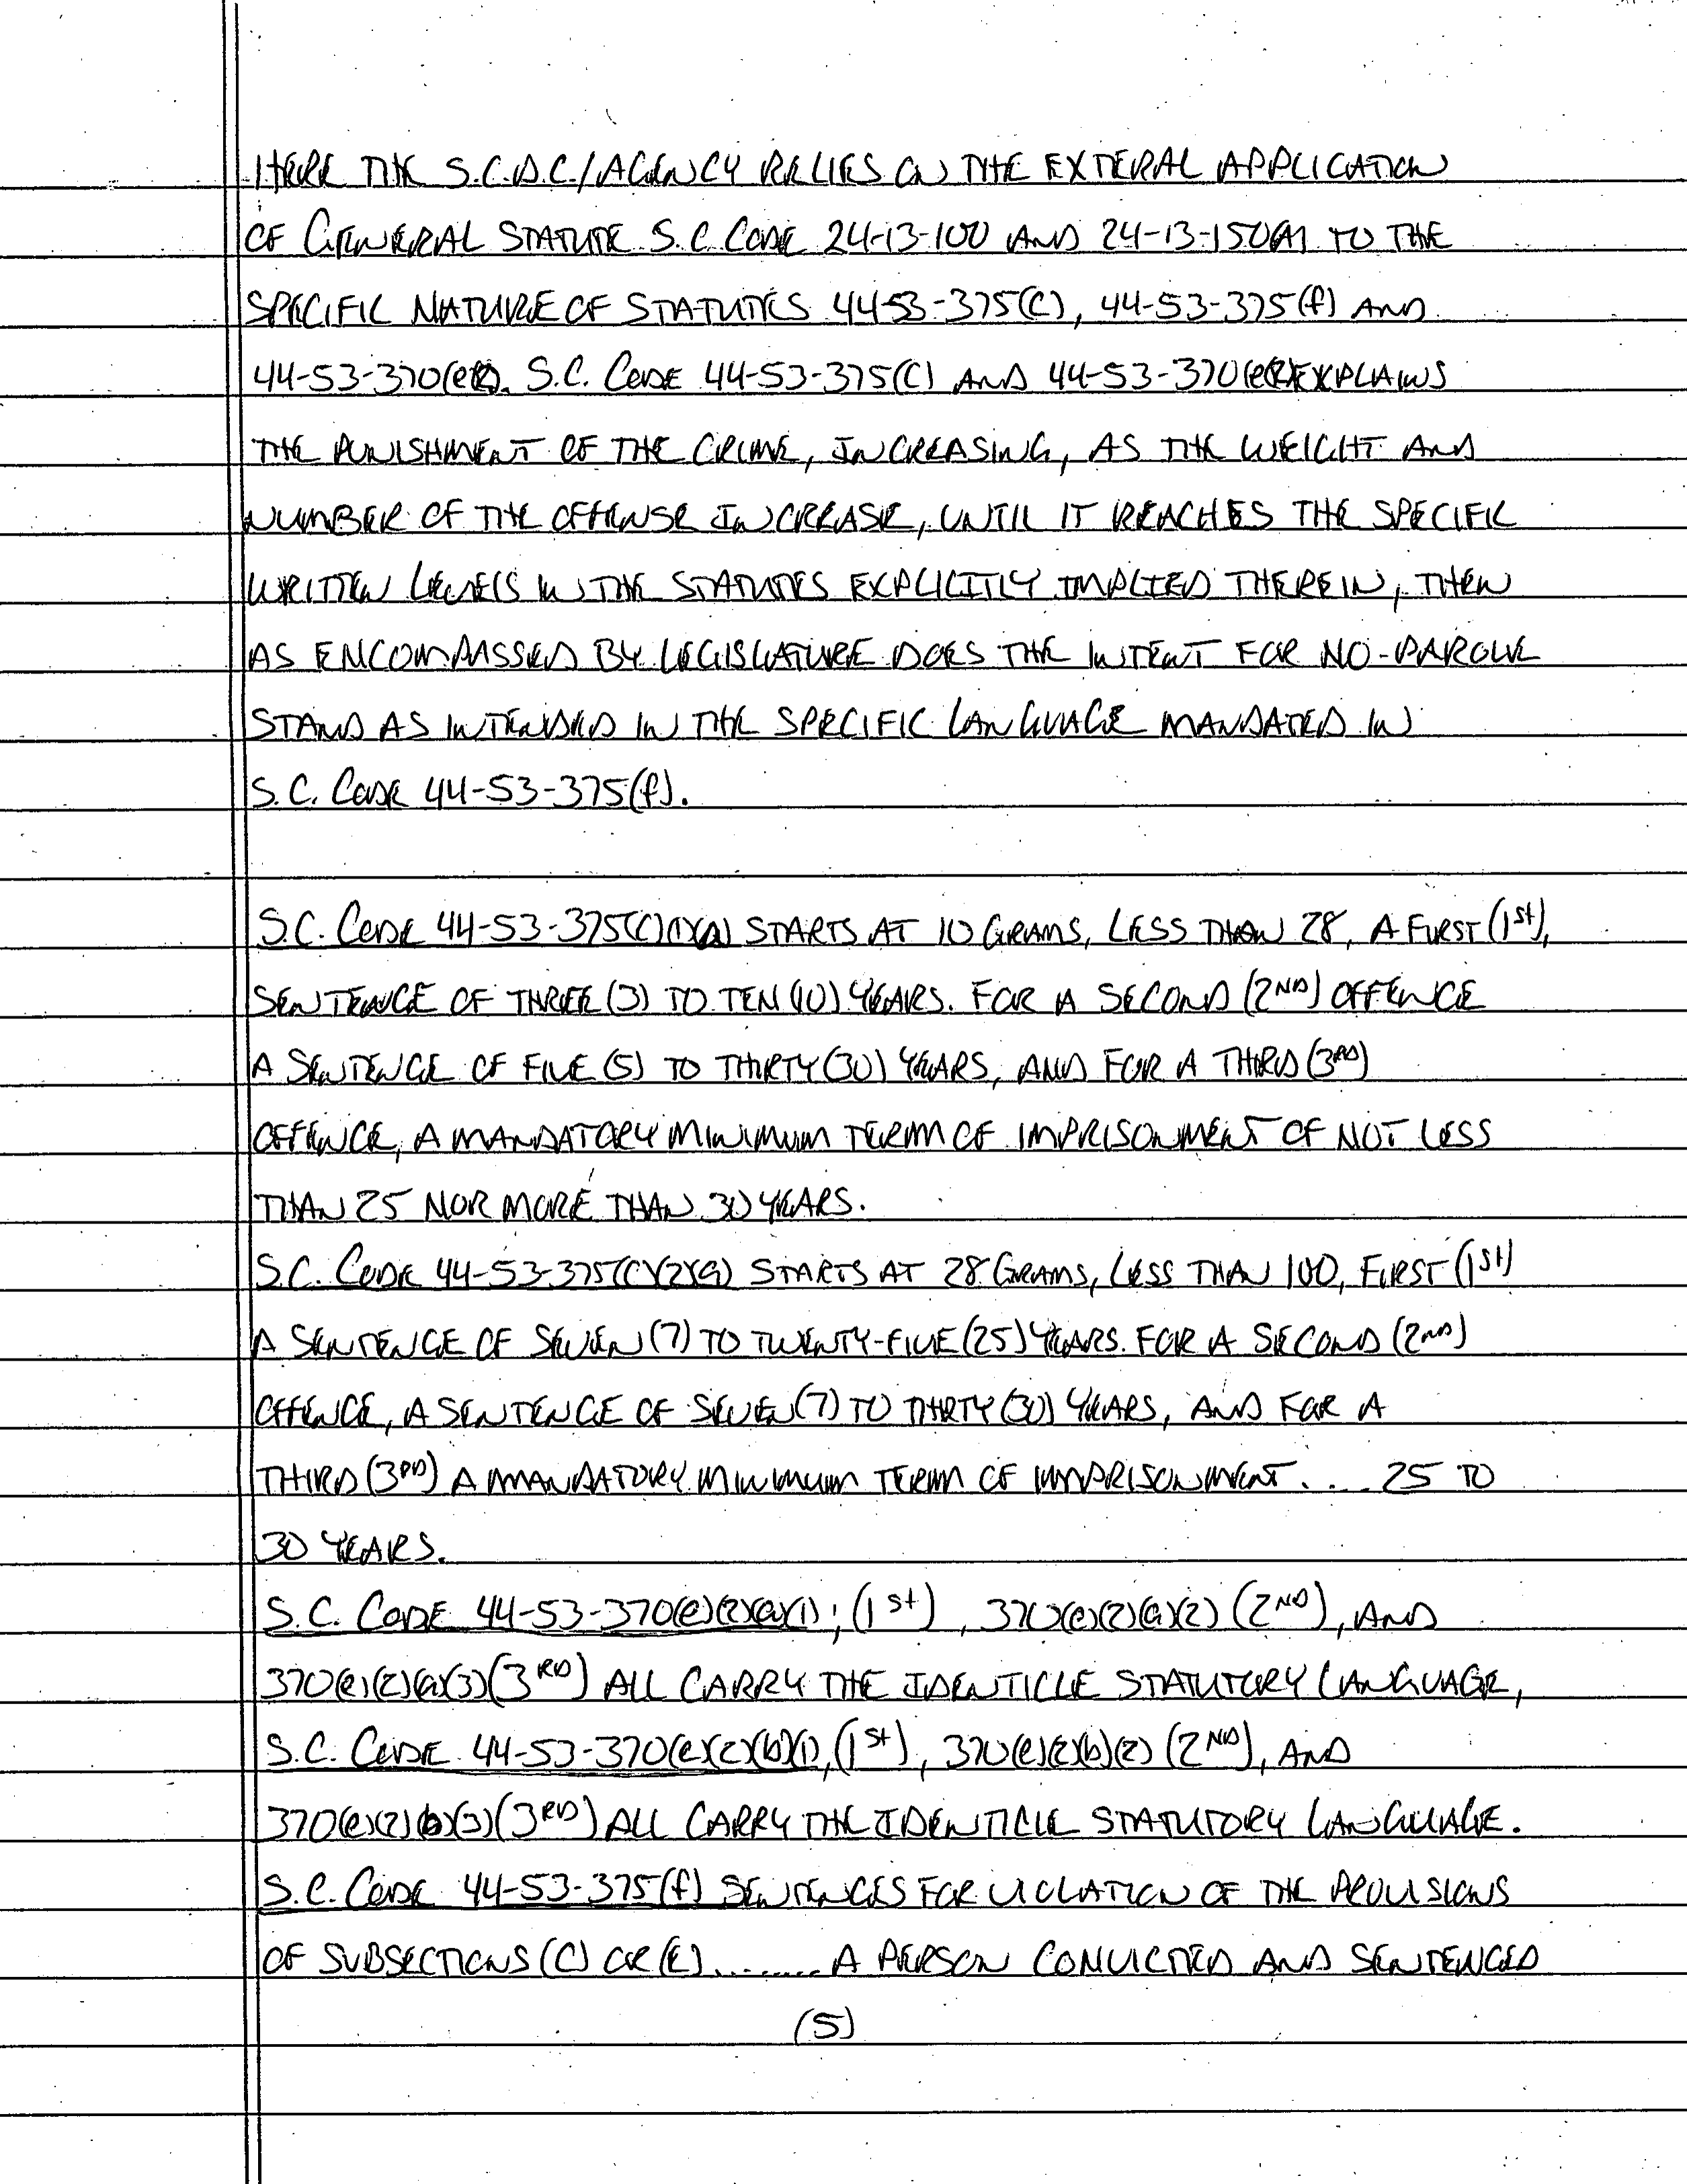 HERE THE S.C.D.C./AGENCY RELIES ON THE EXTERAL APPLICATION
OF GENERAL STATUTE S.C. CODE 24-13-100 AND 24-13-150(A) TO THE
SPECIFIC NATURE OF STATUTES 44-53-375(C), 44-53-375(f) AND
44-53-370(e)(2). S.C. CODE 44-53-375(C) AND 44-53-370(e)(2) EXPLAINS
THE PUNISHMENT OF THE CRIME, INCREASING, AS THE WEIGHT AND
NUMBER OF THE OFFENSE INCREASE, UNTIL IT REACHES THE SPECIFIC
WRITTEN LEVELS IN THE STATUTES EXPLICITLY IMPLIED THEREIN, THEN
AS ENCOMPASSED BY LEGISLATURE DOES THE INTENT FOR NO-PAROLE
STAND AS INTENDED IN THE SPECIFIC LANGUAGE MANDATED IN
S.C. CODE 44-53-375(f).
S.C. CODE 44-53-375(C)(1)(a) STARTS AT 10 GRAMS, LESS THAN 28, A FIRST (1st),
SENTENCE OF THREE (3) TO TEN (10) YEARS. FOR A SECOND (2ND) OFFENCE
A SENTENCE OF FIVE (5) TO THIRTY (30) YEARS, AND FOR A THIRD (3RD)
OFFENCE, A MANDATORY MINIMUM TERM OF IMPRISONMENT OF NOT LESS
THAN 25 NOR MORE THAN 30 YEARS.
S.C. CODE 44-53-375(C)(2)(a) STARTS AT 28 GRAMS, LESS THAN 100, FIRST (1st)
A SENTENCE OF SEVEN (7) TO TWENTY-FIVE (25) YEARS. FOR A SECOND (2ND)
OFFENCE, A SENTENCE OF SEVEN (7) TO THIRTY (30) YEARS, AND FOR A
THIRD (3RD) A MANDATORY MINIMUM TERM OF IMPRISONMENT.... 25 TO
30 YEARS.
S.C. CODE 44-53-370(e)(2)(a)(1); (1st), 370(e)(2)(a)(2) (2ND), AND
370(e)(2)(a)(3) (3RD) ALL CARRY THE IDENTICLE STATUTORY LANGUAGE,
S.C. CODE 44-53-370(e)(2)(b)(1), (1st), 370(e)(2)(b)(2) (2ND), AND
370(e)(2)(b)(3) (3RD) ALL CARRY THE IDENTICLE STATUTORY LANGUAGE.
S.C. CODE 44-53-375(f) SENTENCES FOR VIOLATION OF THE PROVISIONS
OF SUBSECTIONS (C) OR (E)........ A PERSON CONVICTED AND SENTENCED
(5)